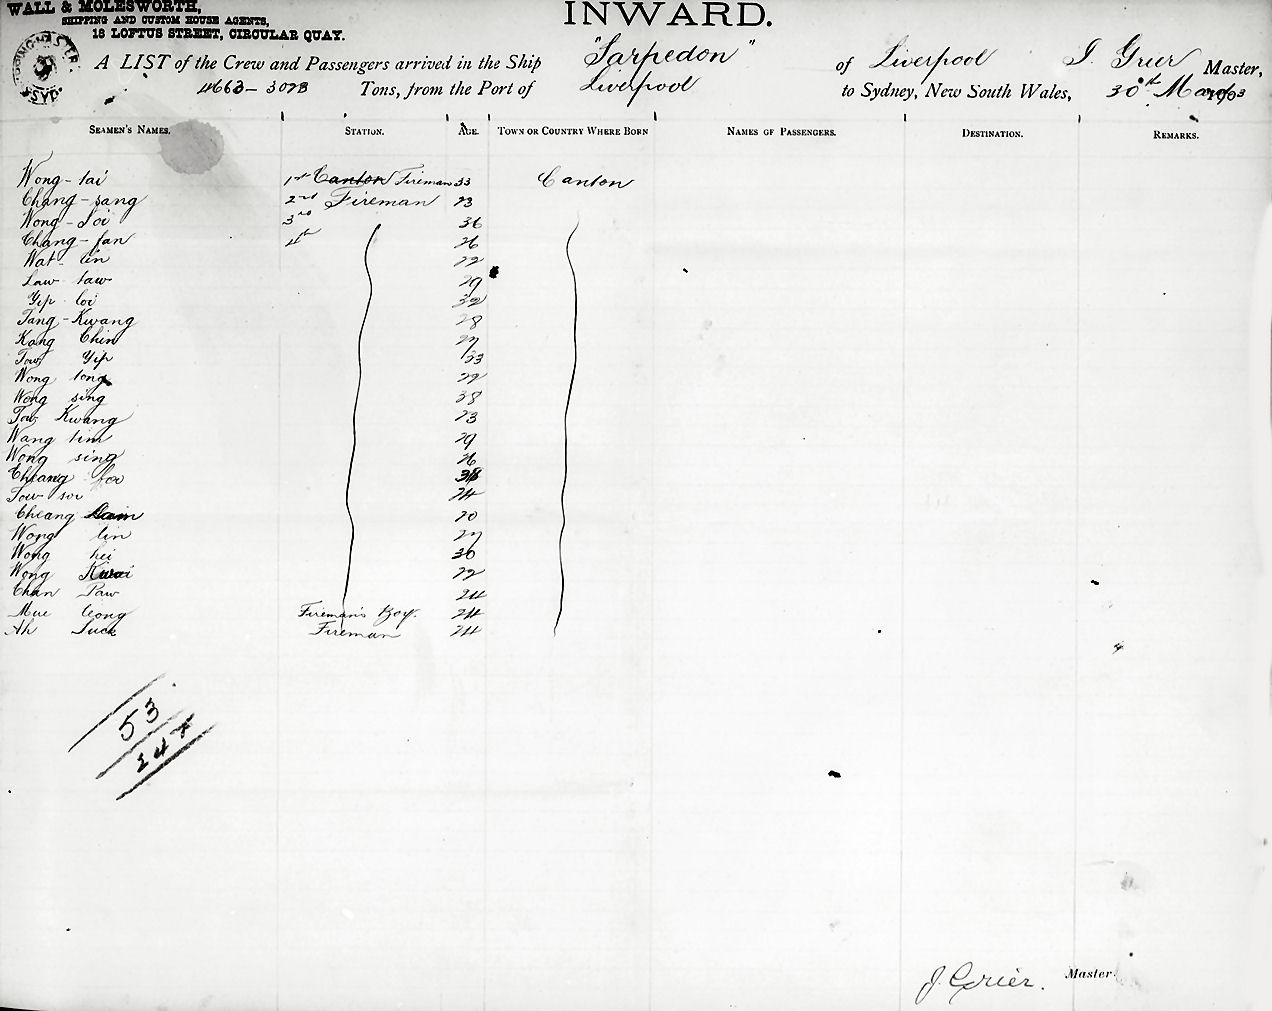 WALL & MOLESWORTH,
SHIPPING AND CUSTOM HOUSE AGENTS,
18 LOFTUS STREET, CIRCULAR QUAY.
INWARD.
A LIST of the Crew and Passengers arrived in the Ship "Sarpedon" of Liverpool J. Grier Master,
4663 - 3073 Tons, from the Port of Liverpool to Sydney, New South Wales, 30th March 1903
SEAMEN'S NAMES. STATION. AGE. TOWN OR COUNTRY WHERE BORN NAMES OF PASSENGERS. DESTINATION. REMARKS.
Wong - tai 1st Canton Fireman 33 Canton
Chang - sang 2nd Fireman 23
Wong - Soi 3rd 36
Chang - fan 4th 26
Wat - lin 22
Law - taw 29
Yip - loi 32
Tang - Kwang 28
Kang Chin 27
Tow Yip 33
Wong tong 22
Wong sing 38
Tag Kwang 23
Wang tim 29
Wong sing 26
Cheang foo
Tow soi 24
Cheang 20
Wong lin 27
Wong hei 30
Wong 22
Chan Paw 24
Mue Leong Fireman's Boy. 24
Ah Luck Fireman 24
53
24
J. Grier. Master.